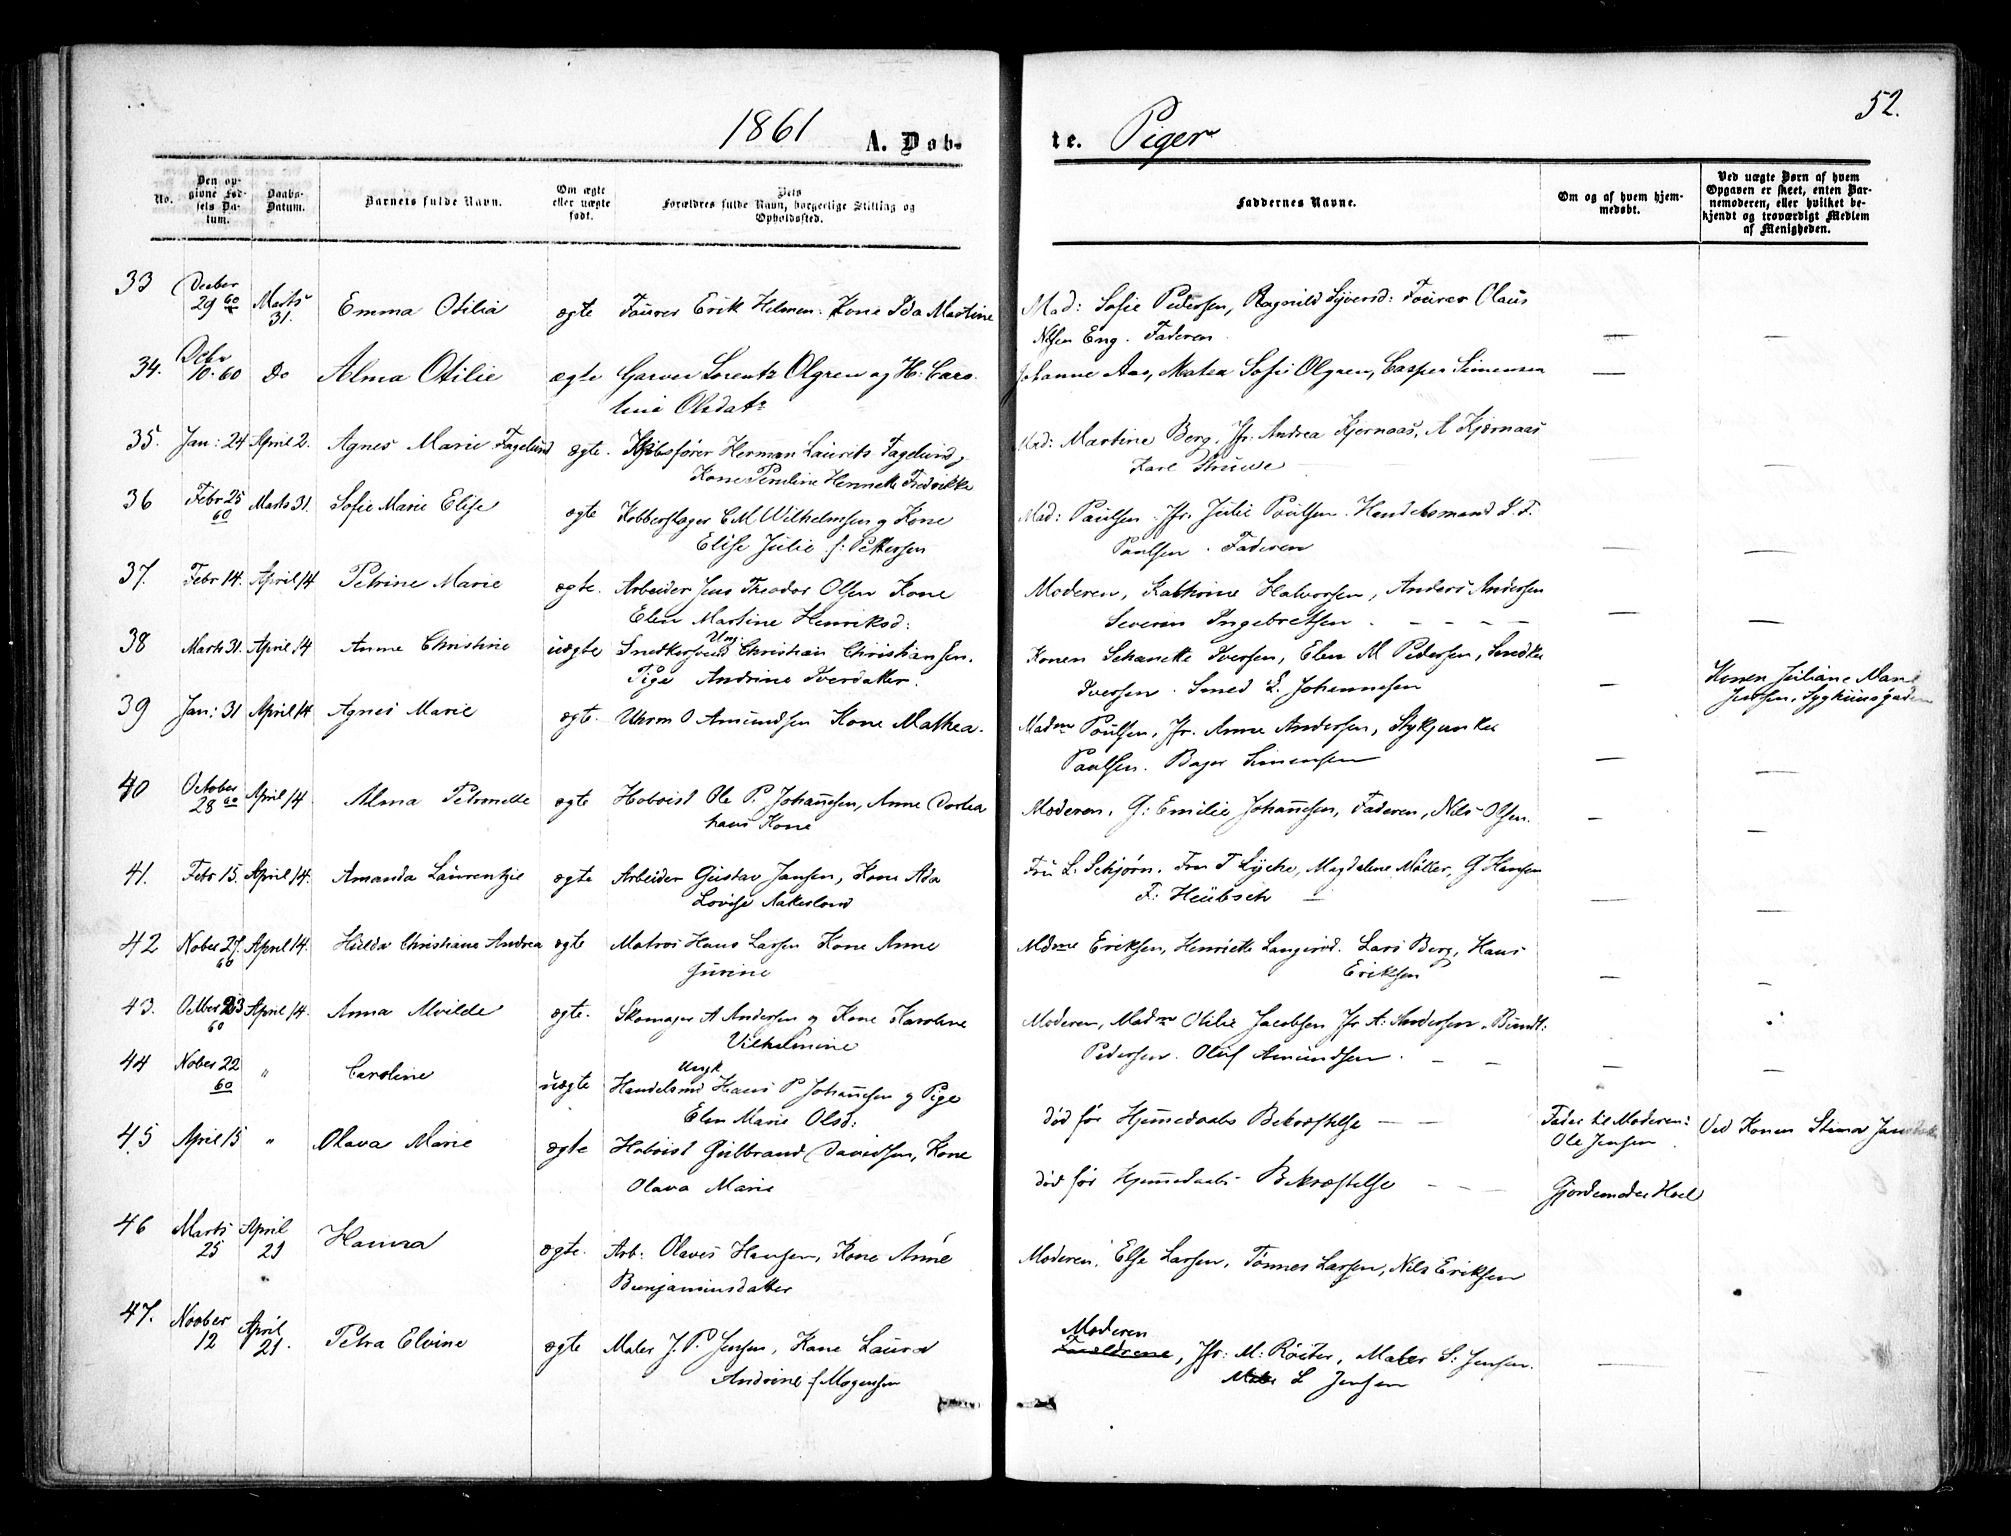 1861 A. Døb-
te. Piger
52.
No.
Den op-
givne Fød-
sels Da-
tum.
Daabs-
Datum.
Barnets fulde Navn.
Om ægte
eller uægte
født.
Dets
Forældres fulde Navn, borgerlige Stilling og
Opholdssted.
Faddernes Navne.
Om og af hvem hjem-
medøbt.
Ved uægte Børn af hvem
Opgaven er skeet, enten Bar-
nemoderen, eller hvilket be-
kjendt og troværdigt Medlem
af Menigheden.
33 Decber 29 60 Marts 31. Emma Otilia ægte Fourer Erik Helmen. Kone Ida Martine Mad: Sofie Pedersen, Ragnild Syversd: Fourer Olaus
Nilsen Eng. Faderen. —
34. Debr 10. 60 Do Alma Otilie ægte Garver Lorentz Olgren og H: Caro- Johanne Aas, Mathea Sofie Olgren, Casper Simensen —
line Olsdatr
35. Jan: 24 April 2. Agnes Marie Fagelund ægte. Skibsfører Herman Laurits Fagelund, Mad: Martine Berg. Jfr. Andrea Kjernaas, A Kjærnaas
Kone Pauline Henriette Fredrikke Karl Struwe — — —
36 Febr 25 60 Marts 31. Sofie Marie Elise ægte Kobberslager C M Wilhelmsen og Kone Mad: Paulsen. Jfr. Julie Poulsen. Handelsmand
Elise Julie f: Pettersen Paulsen. Faderen — —
37. Febr 14. April 14 Petrine Marie ægte. Arbeider Jens Theodor Olsen Kone Moderen, Kathrine Halvorsen, Anders Andersen
Elen Martine Henriksd: Severin Ingebretsen — —
38 Marts 31. April 14 Anne Christine uægte Snedkersvend Ung. Christian Christiansen. Konen Iversen, Elen M Pedersen, Snedker
Pige Andrine Sverdaker. Iversen. Smed L. Johannesen — Konen Juliane Marie
Jensen, Sygehuusgaden
39 Jan: 31 April 14 Agnes Marie ægte. Uhrm O Amundsen Kone Mathea. Madme Poulsen, Jfr. Anne Andersen, Stykjunker
Paulsen. Bager Simensen — —
40 October 28 60 April 14 Alma Petronelle ægte Hoboist Ole P. Johannesen, Anne Dorthea Moderen, G: Emilie Johannesen, Faderen, Nils Olsen. — —
hans Kone
41. Febr 15. April 14. Amanda Laurentzie ægte Arbeider Gustav Jansen, Kone Ada Fru L. Schjørn. Fru T Lyche, Magdalene Møller, G Hansen
Lovise Aakerlund F: Heubsch — —
42 Nober 27. 60 April 14. Hilda Christiane Andrea ægte Matros Hans Larsen Kone Anne Mdme Eriksen, Henriette Langerød. Lars Berg, Hans
Jurine Eriksen — —
43. October 23 60 April 14. Anna Alvilde ægte. Skomager A Andersen og Kone Karoline Moderen, Madme Otilie Jacobsen Jfr A: Andersen. Bundt:
Vilhelmine Pedersen. Oluf Amundsen. — —
44 Nober 22 60 " Caroline uægte Handelsmd Ungk Hans P Johannesen og Pige
Elen Marie Olsd: død før Hjemmedaabs Bekræftelse — — Fader til Moderen:
Ole Jensen Ved Konen Stina
45 April 15 " Olava Marie ægte Hoboist Gulbrand Davidsen, Kone
Olava Marie død før Hjemmedaabs Bekræftelse — — Gjordemoder Hoel
46 Marts 25 April 21 Hanna ægte. Arb: Olaves Hansen, Kone Anne Moderen, Else Larsen, Tønnes Larsen, Nils Eriksen
Benjaminsdatter
47. Novber 12 April 21. Petra Elvine ægte Maler J. P. Jensen, Kone Laura Moderen Forældrene, Jfr: M: Röiter, Maler S: Jensen. —
Andrine f Mogensen Maler L Jensen